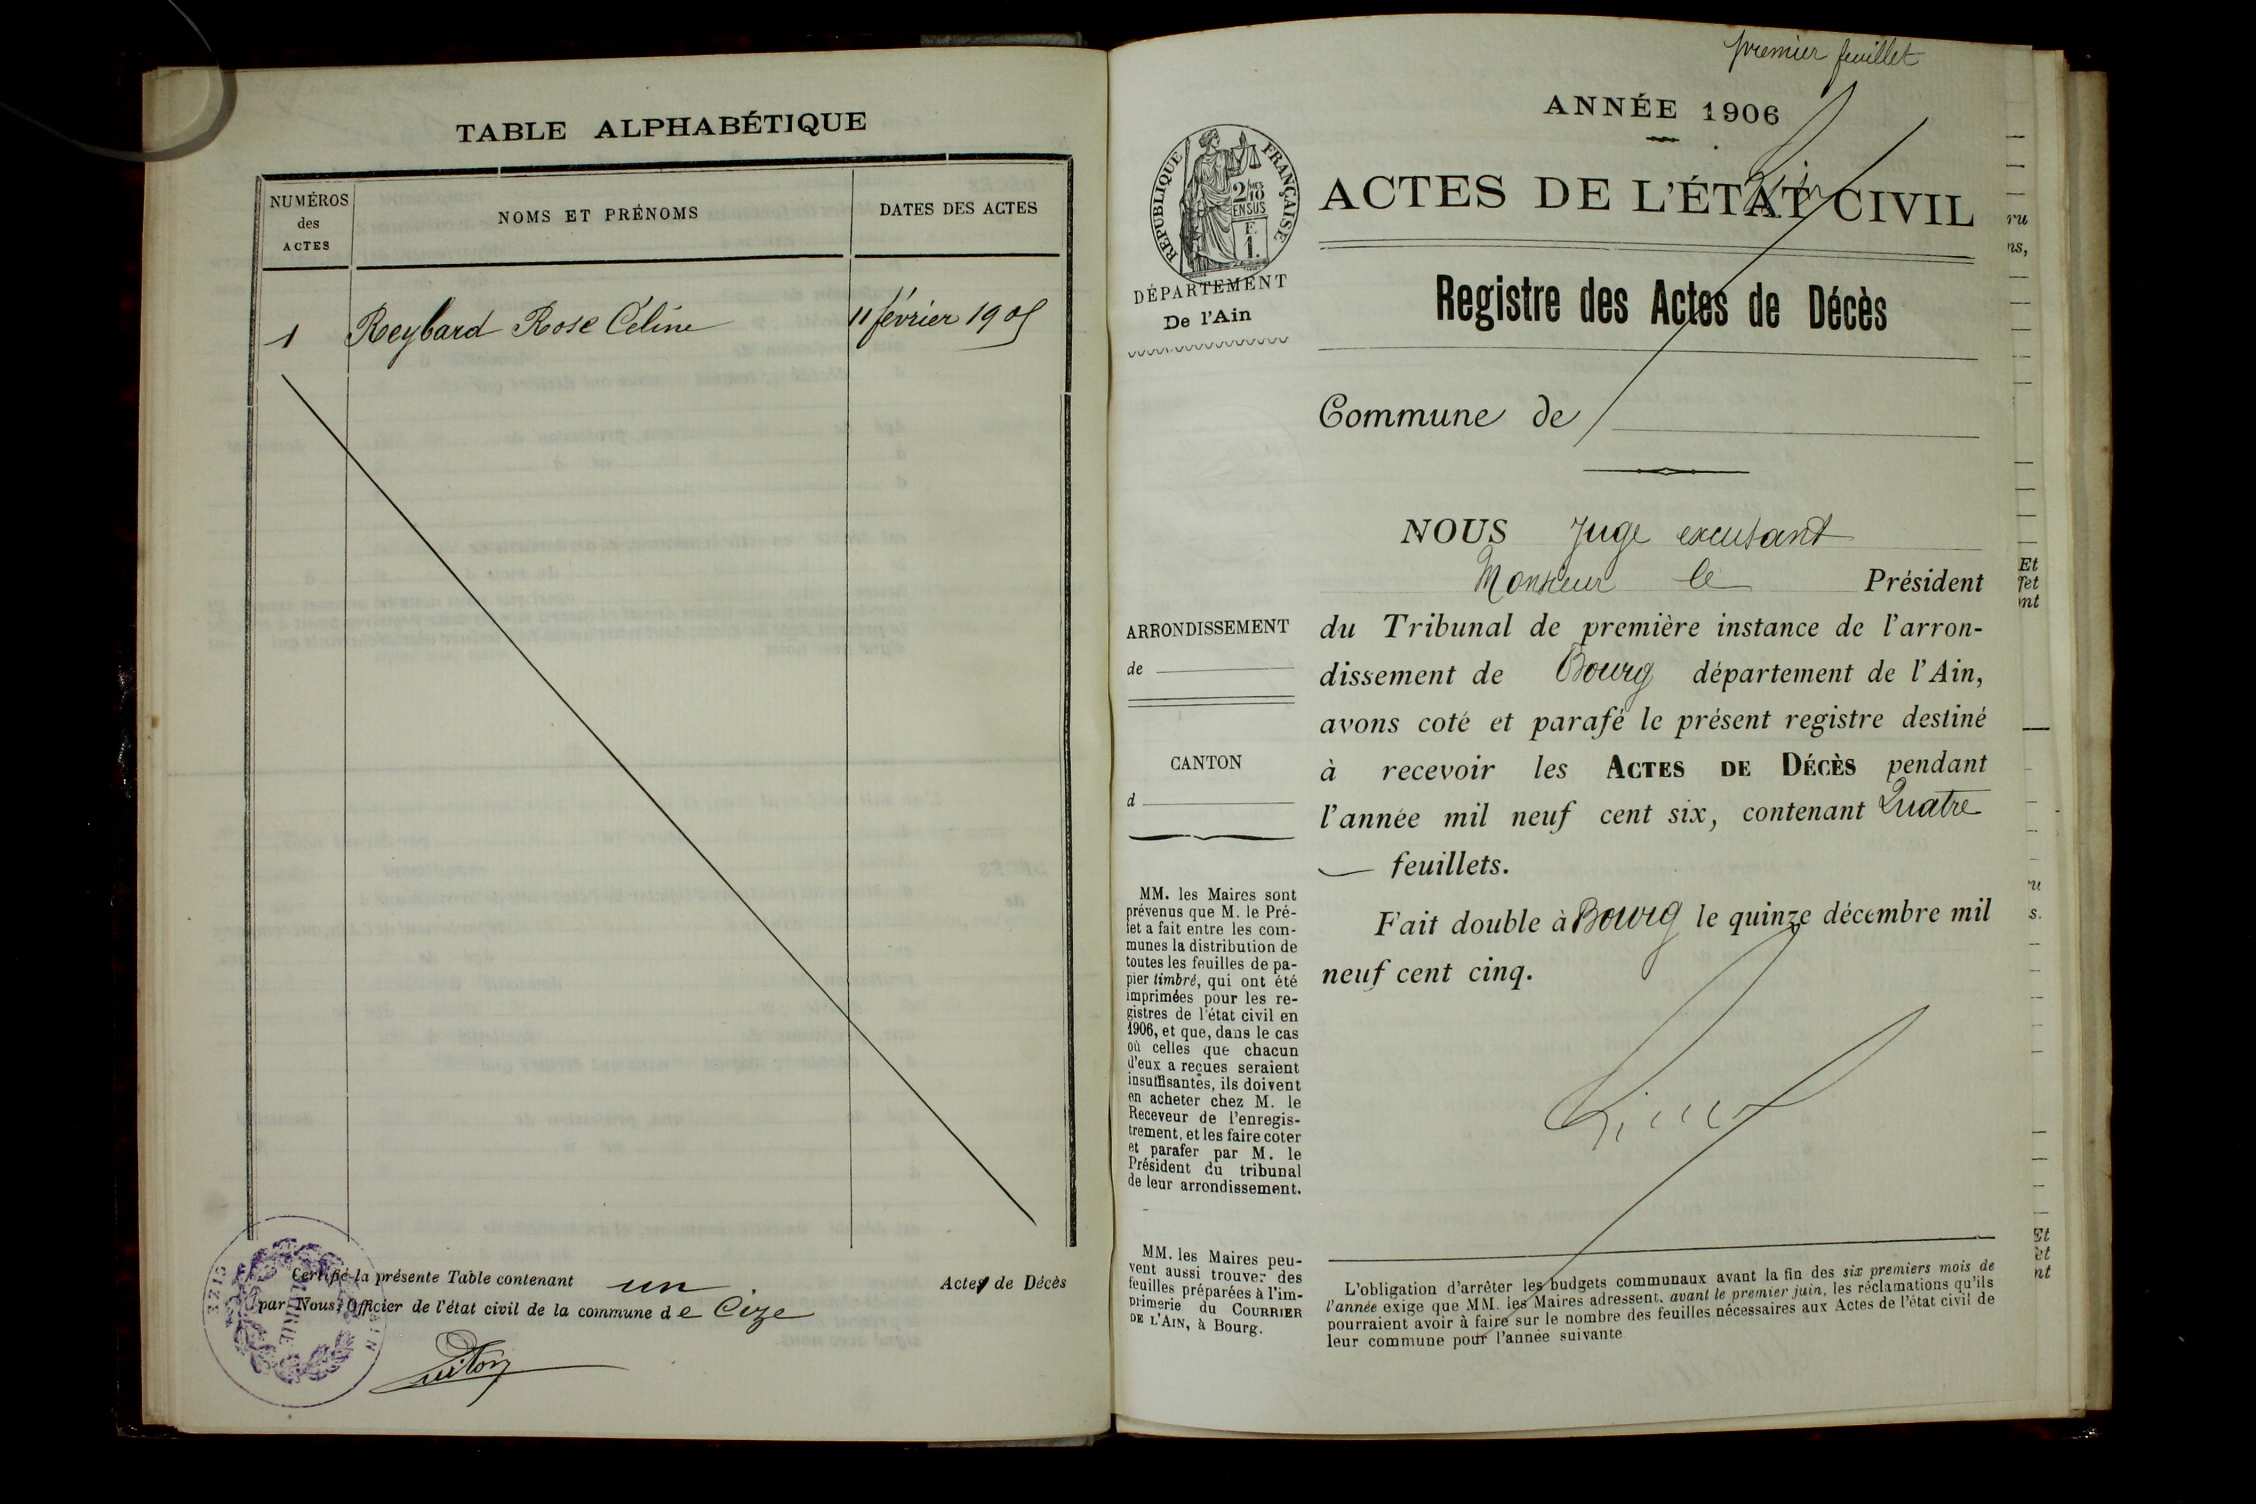 TABLE ALPHABÉTIQUE
NUMÉROS
des
ACTES
NOMS ET PRÉNOMS
DATES DES ACTES
1 Reybard Rose Céline 11 février 1905
Certifié la présente Table contenant un Acte de Décès
par Nous, Officier de l'état civil de la commune de Cize
MAIRIE
AIN
premier feuillet
ANNÉE 1906
RÉPUBLIQUE FRANÇAISE
2/10 MES
EN SUS
F.
1.
DÉPARTEMENT
De l'Ain
ACTES DE L'ÉTAT CIVIL
Registre des Actes de Décès
Commune de
NOUS Juge excusant
Monsieur le Président
du Tribunal de première instance de l'arron-
dissement de Bourg département de l'Ain,
avons coté et parafé le présent registre destiné
à recevoir les ACTES DE DÉCÈS pendant
l'année mil neuf cent six, contenant Quatre
feuillets.
Fait double à Bourg le quinze décembre mil
neuf cent cinq.
ARRONDISSEMENT
de
CANTON
d
MM. les Maires sont
prévenus que M. le Pré-
fet a fait entre les com-
munes la distribution de
toutes les feuilles de pa-
pier timbré, qui ont été
imprimées pour les re-
gistres de l'état civil en
1906, et que, dans le cas
où celles que chacun
d'eux a reçues seraient
insuffisantes, ils doivent
en acheter chez M. le
Receveur de l'enregis-
trement, et les faire coter
et parafer par M. le
Président du tribunal
de leur arrondissement.
MM. les Maires peu-
vent aussi trouver des
feuilles préparées à l'im-
primerie du COURRIER
DE L'AIN, à Bourg.
L'obligation d'arrêter les budgets communaux avant la fin des six premiers mois de
l'année exige que MM. les Maires adressent, avant le premier juin, les réclamations qu'ils
pourraient avoir à faire sur le nombre des feuilles nécessaires aux Actes de l'état civil de
leur commune pour l'année suivante